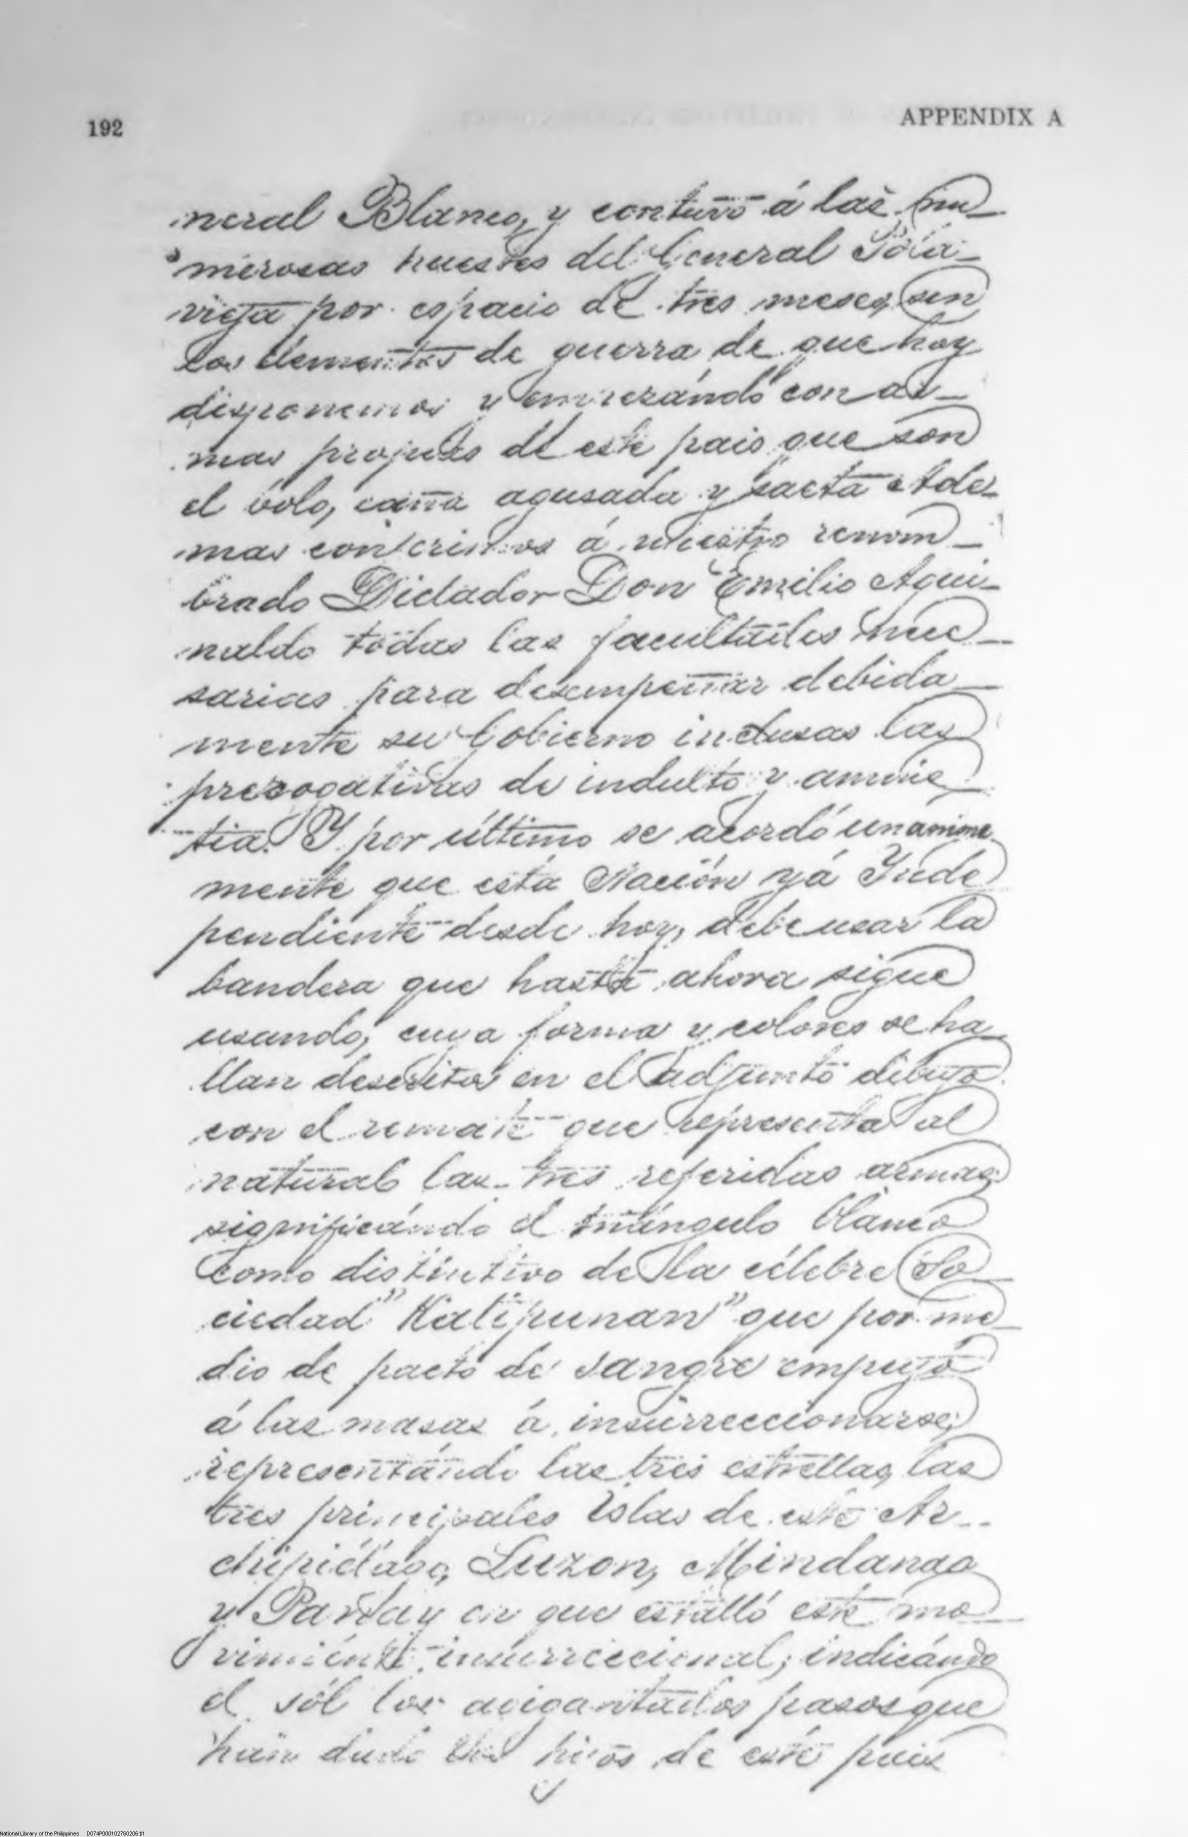 192
APPENDIX A
neral Blanco, y contuvo á las nu_
merosas huestes del General Pola_
vieja por espacio de tres meses, sin
los elementos de guerra de que hoy
disponemos y empezándo con ar_
mas propias de este pais que son
el bolo, caña agusada y saeta Ade_
mas conferimos á nuestro renom_
brado Dictador Don Emilio Agui_
naldo todas las facultades nece_
sarias para desempeñar debida_
mente su Gobierno inclusas las
prerogativas de indulto y amnis_
tia. Y por último se acordó unanime
mente que esta Nación yá Inde
pendiente desde hoy, debe usar la
bandera que hasta ahora sigue
usando, cuya forma y colores se ha_
llan descrita en el adjunto dibujo
con el remate que representa al
natural las tres referidas armas
significándo el triángulo blanco
como distintivo de la célebre So_
ciedad "Katipunan" que por me_
dio de pacto de sangre empujó
á las masas á insurreccionarse;
representándo las tres estrellas, las
tres principales Islas de este Ar_
chipiélago, Luzon, Mindanao
y Panay en que estalló este mo_
vimiento insurreccional; indicándo
el sól los agigantados pasos que
han dado los hijos de este pais
National Library of the Philippines